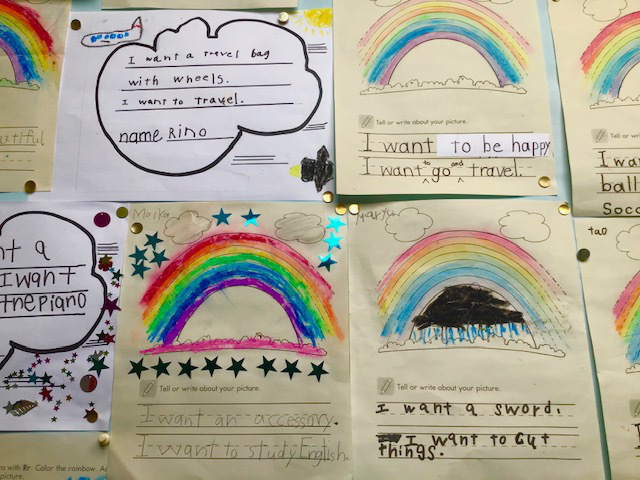 I want a travel bag
with wheels.
I want to travel.
name Rino
Tell or write about your picture.
I want to be happy
I want to go and travel.
I wa
ball
Socc
nt a
I want
the piano
Maika
Tell or write about your picture.
I want an accessory.
I want to study English.
Tell or write about your picture.
I want a sword.
I want to cut
things.
tao
with Rr. Color the rainbow.
picture.